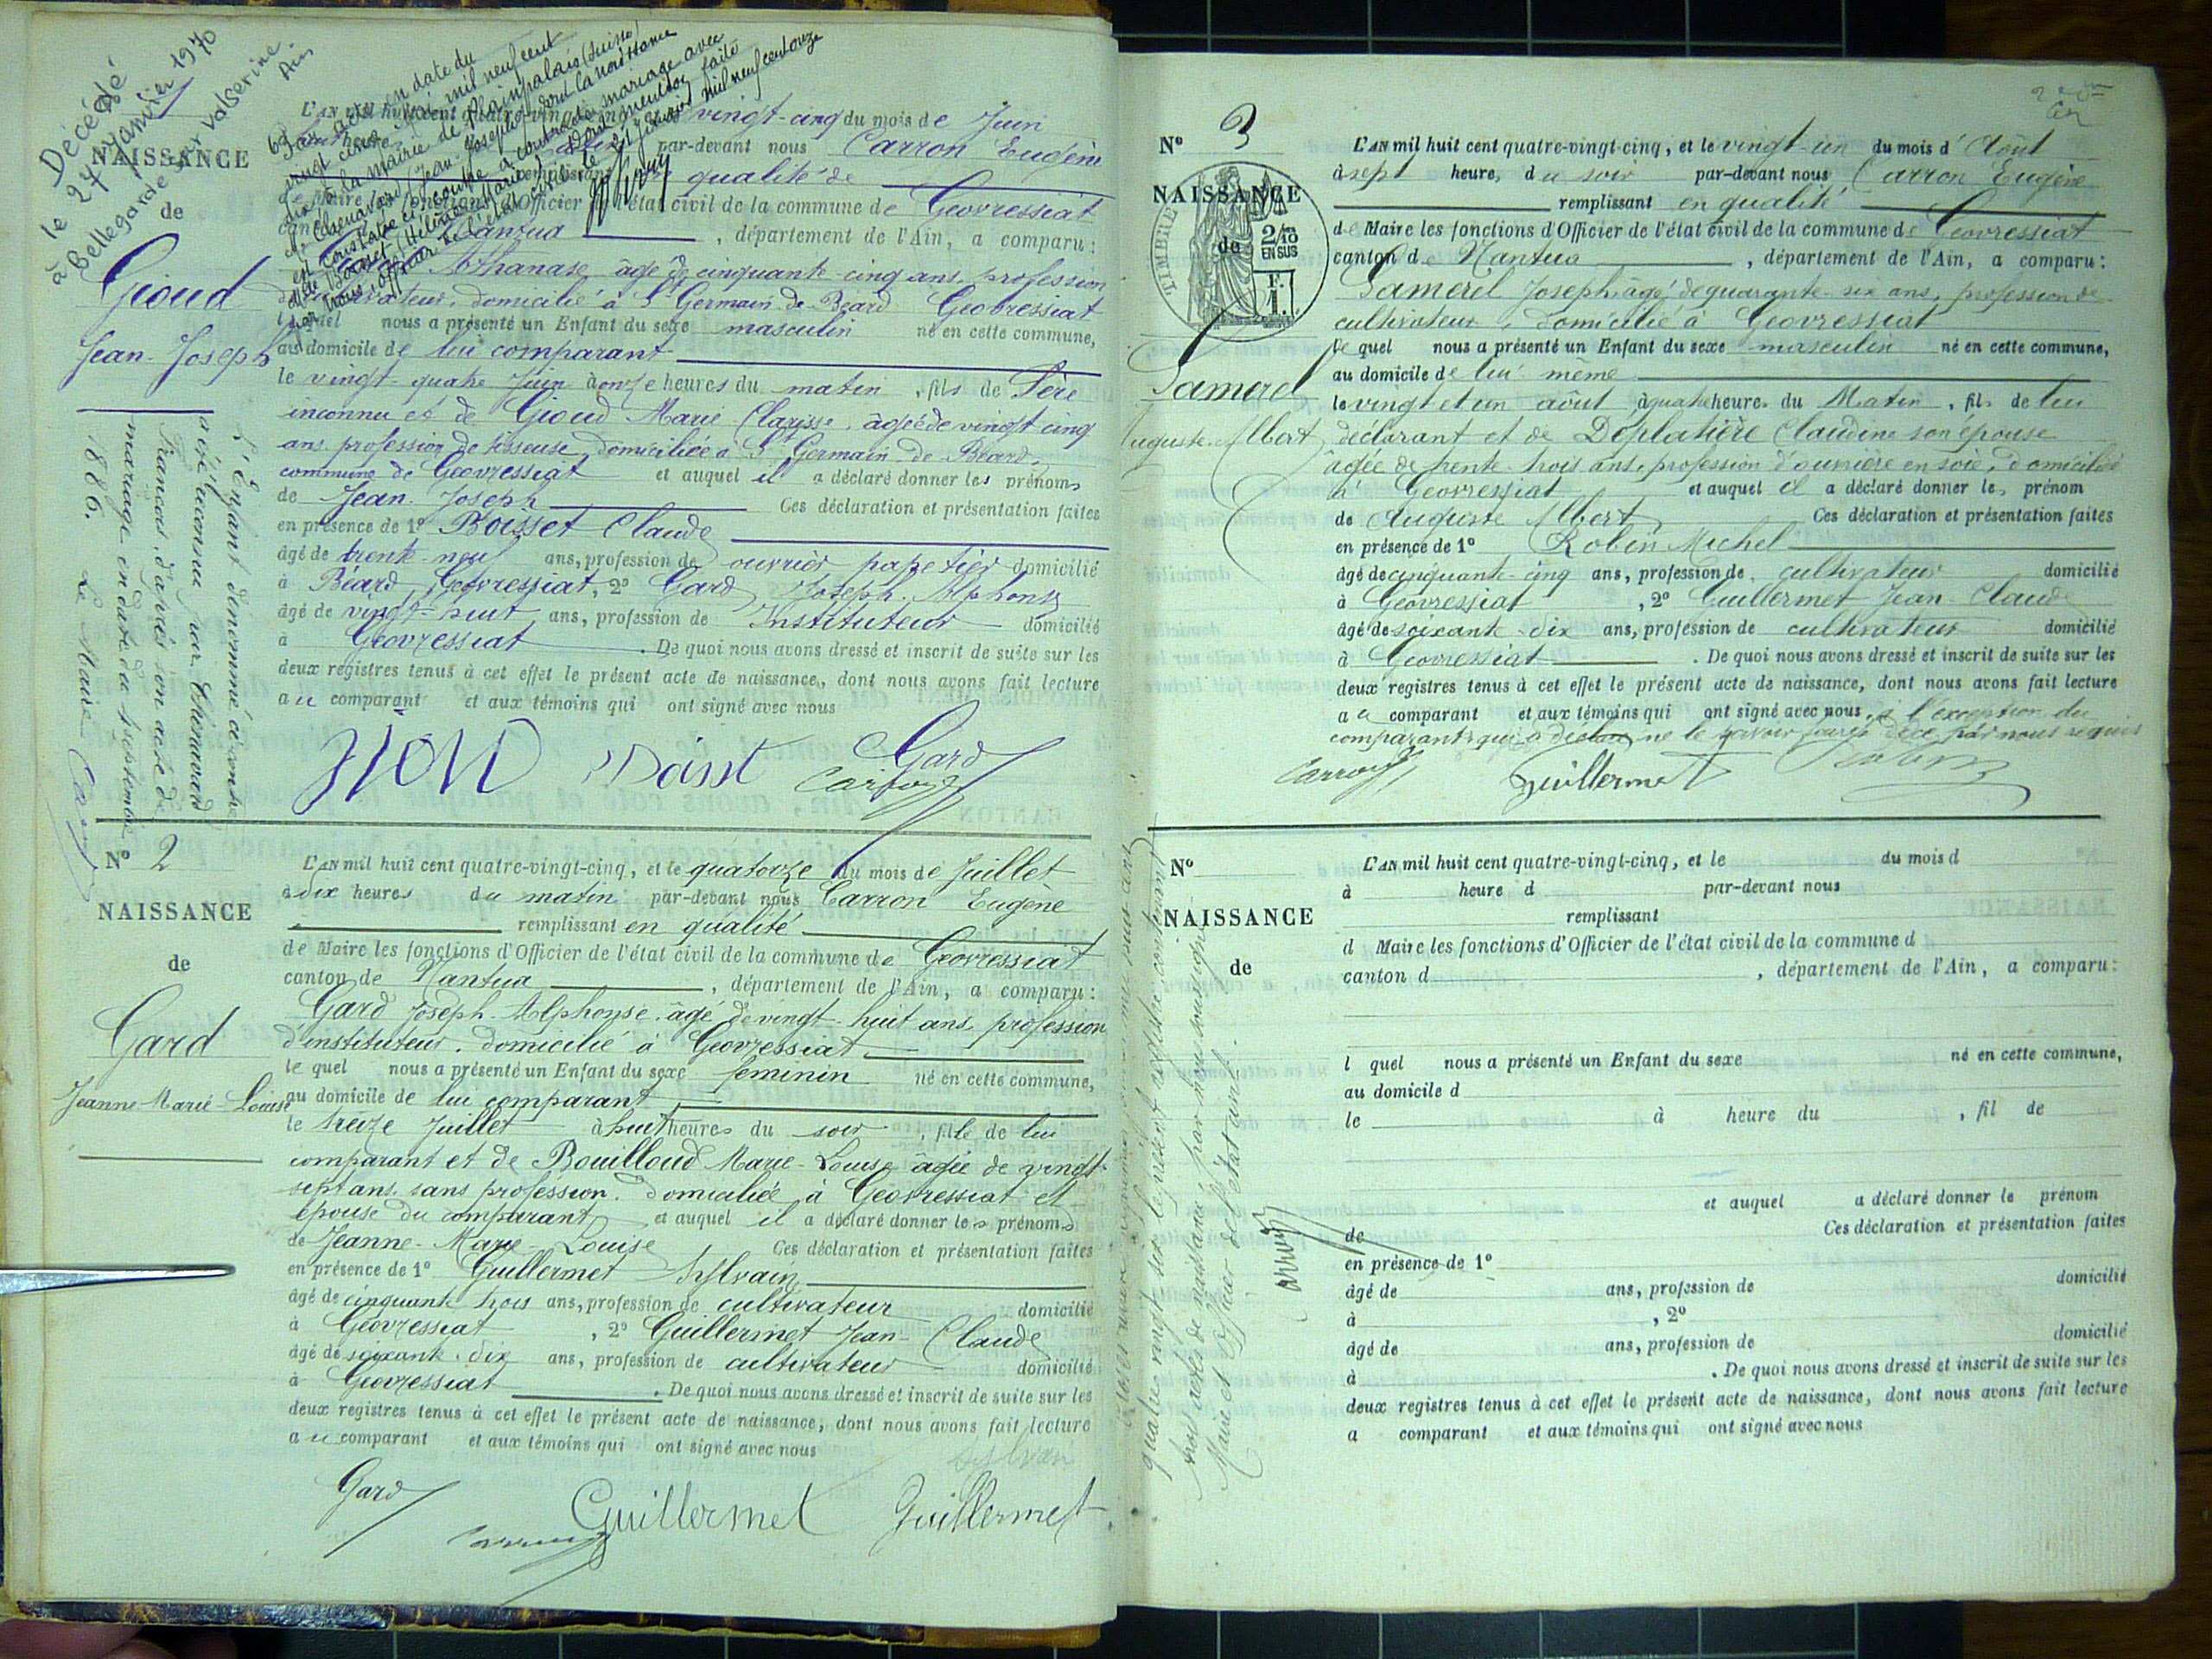 Décédé
le 27 Janvier 1970
à Bellegarde sur Valserine
Ain
NAISSANCE
de
Gioud
Jean-Joseph
L'Enfant dénommé ci-contre
a été reconnu par Chénavard
François, d'après son acte de
mariage en date du septembre
1886. Le Maire
en date du
mil neuf cent
la mairie de Plainpalais (Suisse)
vingt-cinq du mois de Juin
par-devant nous Carron Eugène
qualité de
de Maire les fonctions d'Officier de l'état civil de la commune de Géovressiat
canton de Nantua, département de l'Ain, a comparu:
Gioud Athanase, âgé de cinquante-cinq ans, profession
de cultivateur, domicilié à St Germain de Béard Géovressiat
lequel nous a présenté un Enfant du sexe masculin né en cette commune,
au domicile de lui comparant
le vingt-quatre Juin à onze heures du matin, fils de Père
inconnu et de Gioud Marie Clarisse, âgée de vingt cinq
ans profession de tisseuse, domiciliée à St Germain de Béard,
commune de Géovressiat et auquel il a déclaré donner les prénoms
de Jean-Joseph Ces déclaration et présentation faites
en présence de 1° Boisset Claude
âgé de trente-neuf ans, profession de ouvrier papetier domicilié
à Béard, Géovressiat, 2° Gard Joseph-Alphonse
âgé de vingt-huit ans, profession de Instituteur domicilié
à Géovressiat. De quoi nous avons dressé et inscrit de suite sur les
deux registres tenus à cet effet le présent acte de naissance, dont nous avons fait lecture
au comparant et aux témoins qui ont signé avec nous
Gard
N° 2
NAISSANCE
de
Gard
Jeanne-Marie-Louise
L'AN mil huit cent quatre-vingt-cinq, et le quatorze du mois de Juillet
à dix heures du matin par-devant nous Carron Eugène
remplissant en qualité
de Maire les fonctions d'Officier de l'état civil de la commune de Géovressiat
canton de Nantua, département de l'Ain, a comparu:
Gard Joseph-Alphonse âgé de vingt-huit ans, profession
d'instituteur, domicilié à Géovressiat
le quel nous a présenté un Enfant du sexe feminin né en cette commune,
au domicile de lui comparant
le treize Juillet à huit heures du soir, fille de lui
comparant et de Bouilloud Marie-Louise âgée de vingt-
sept ans, sans profession, domiciliée à Géovressiat et
épouse du comparant et auquel il a déclaré donner les prénoms
de Jeanne-Marie-Louise Ces déclaration et présentation faites
en présence de 1° Guillermet Sylvain
âgé de cinquante trois ans, profession de cultivateur domicilié
à Géovressiat, 2° Guillermet Jean-Claude
âgé de soixante-dix ans, profession de cultivateur domicilié
à Géovressiat. De quoi nous avons dressé et inscrit de suite sur les
deux registres tenus à cet effet le présent acte de naissance, dont nous avons fait lecture
au comparant et aux témoins qui ont signé avec nous
Sylvain
Gard
Guillermet Guillermet
N° 3
NAISSANCE
de
TIMBRE
2/10
EN SUS
F.
1.
Jamerel
Auguste Albert
L'AN mil huit cent quatre-vingt-cinq, et le vingt-un du mois d'Août
à sept heure, du soir par-devant nous Carron Eugène
remplissant en qualité
de Maire les fonctions d'Officier de l'état civil de la commune de Géovressiat
canton de Nantua, département de l'Ain, a comparu:
Jamerel Joseph, âgé de quarante-six ans, profession de
cultivateur, domicilié à Géovressiat
le quel nous a présenté un Enfant du sexe masculin né en cette commune,
au domicile de lui même
le vingt et un août à quatre heures du Matin, fils de lui
déclarant et de Déplatière Claudine son épouse
âgée de trente-trois ans, profession d'ouvrière en soie, domiciliée
à Géovressiat et auquel il a déclaré donner les prénom
de Auguste Albert Ces déclaration et présentation faites
en présence de 1° Robin Michel
âgé de cinquante-cinq ans, profession de cultivateur domicilié
à Géovressiat, 2° Guillermet Jean-Claude
âgé de soixante-dix ans, profession de cultivateur domicilié
à Géovressiat. De quoi nous avons dressé et inscrit de suite sur les
deux registres tenus à cet effet le présent acte de naissance, dont nous avons fait lecture
au comparant et aux témoins qui ont signé avec nous, à l'exception du
comparant qui a déclaré ne le savoir par nous requis
Carron Guillermet Robin
N°
NAISSANCE
de
L'AN mil huit cent quatre-vingt-cinq, et le du mois d
à heure d par-devant nous
remplissant
d Maire les fonctions d'Officier de l'état civil de la commune d
canton d, département de l'Ain, a comparu:
l quel nous a présenté un Enfant du sexe né en cette commune,
au domicile d
le à heure du, fil de
et auquel a déclaré donner le prénom
de Ces déclaration et présentation faites
en présence de 1°
âgé de ans, profession de domicilié
à, 2°
âgé de ans, profession de domicilié
à. De quoi nous avons dressé et inscrit de suite sur les
deux registres tenus à cet effet le présent acte de naissance, dont nous avons fait lecture
a comparant et aux témoins qui ont signé avec nous
quatre vingt six le présent registre contenant
trois actes de naissance, par nous soussigné
Maire et Officier de l'état civil.